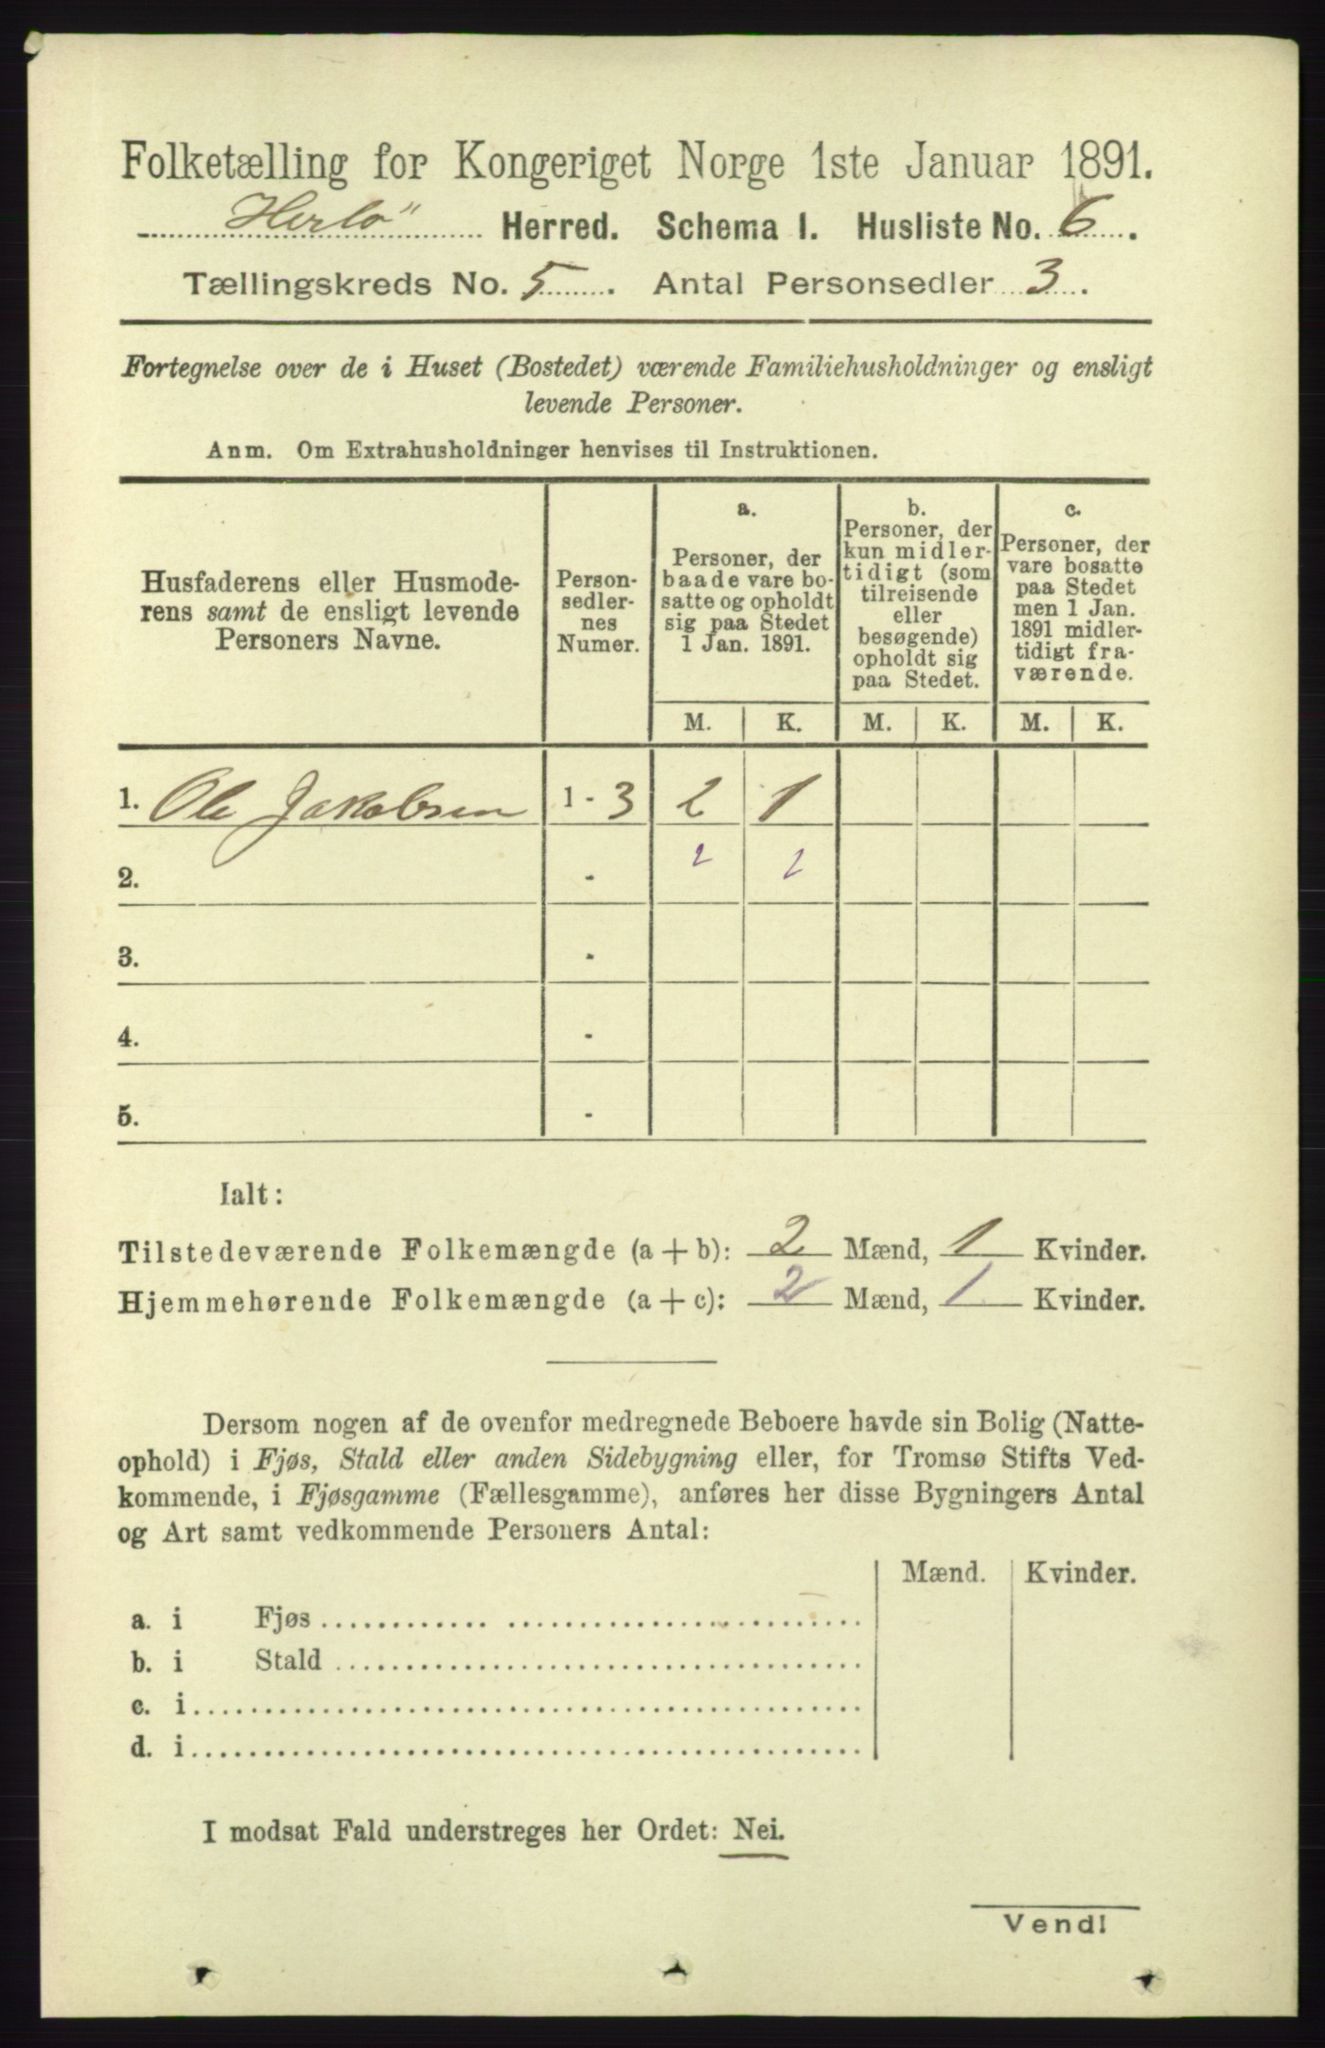 Folketælling for Kongeriget Norge 1ste Januar 1891.
Herlö Herred. Schema I. Husliste No. 6.
Tællingskreds No. 5. Antal Personsedler 3.
Fortegnelse over de i Huset (Bostedet) værende Familiehusholdninger og ensligt
levende Personer.
Anm. Om Extrahusholdninger henvises til Instruktionen.
Husfaderens eller Husmode-
rens samt de ensligt levende
Personers Navne.
Person-
sedler-
nes
Numer.
a.
Personer, der
baade vare bo-
satte og opholdt
sig paa Stedet
1 Jan. 1891.
b.
Personer, der
kun midler-
tidigt (som
tilreisende
eller
besøgende)
opholdt sig
paa Stedet.
c.
Personer, der
vare bosatte
paa Stedet
men 1 Jan.
1891 midler-
tidigt fra-
værende.
M. K. M. K. M. K.
1. Ole Jakobsen 1 - 3 2 1
2. - 2 2
3. -
4. -
5. -
Ialt:
Tilstedeværende Folkemængde (a + b): 2 Mænd, 1 Kvinder.
Hjemmehørende Folkemængde (a + c): 2 Mænd, 1 Kvinder.
Dersom nogen af de ovenfor medregnede Beboere havde sin Bolig (Natte-
ophold) i Fjøs, Stald eller anden Sidebygning eller, for Tromsø Stifts Ved-
kommende, i Fjøsgamme (Fællesgamme), anføres her disse Bygningers Antal
og Art samt vedkommende Personers Antal:
Mænd. Kvinder.
a. i Fjøs
b. i Stald
c. i
d. i
I modsat Fald understreges her Ordet: Nei.
Vend!